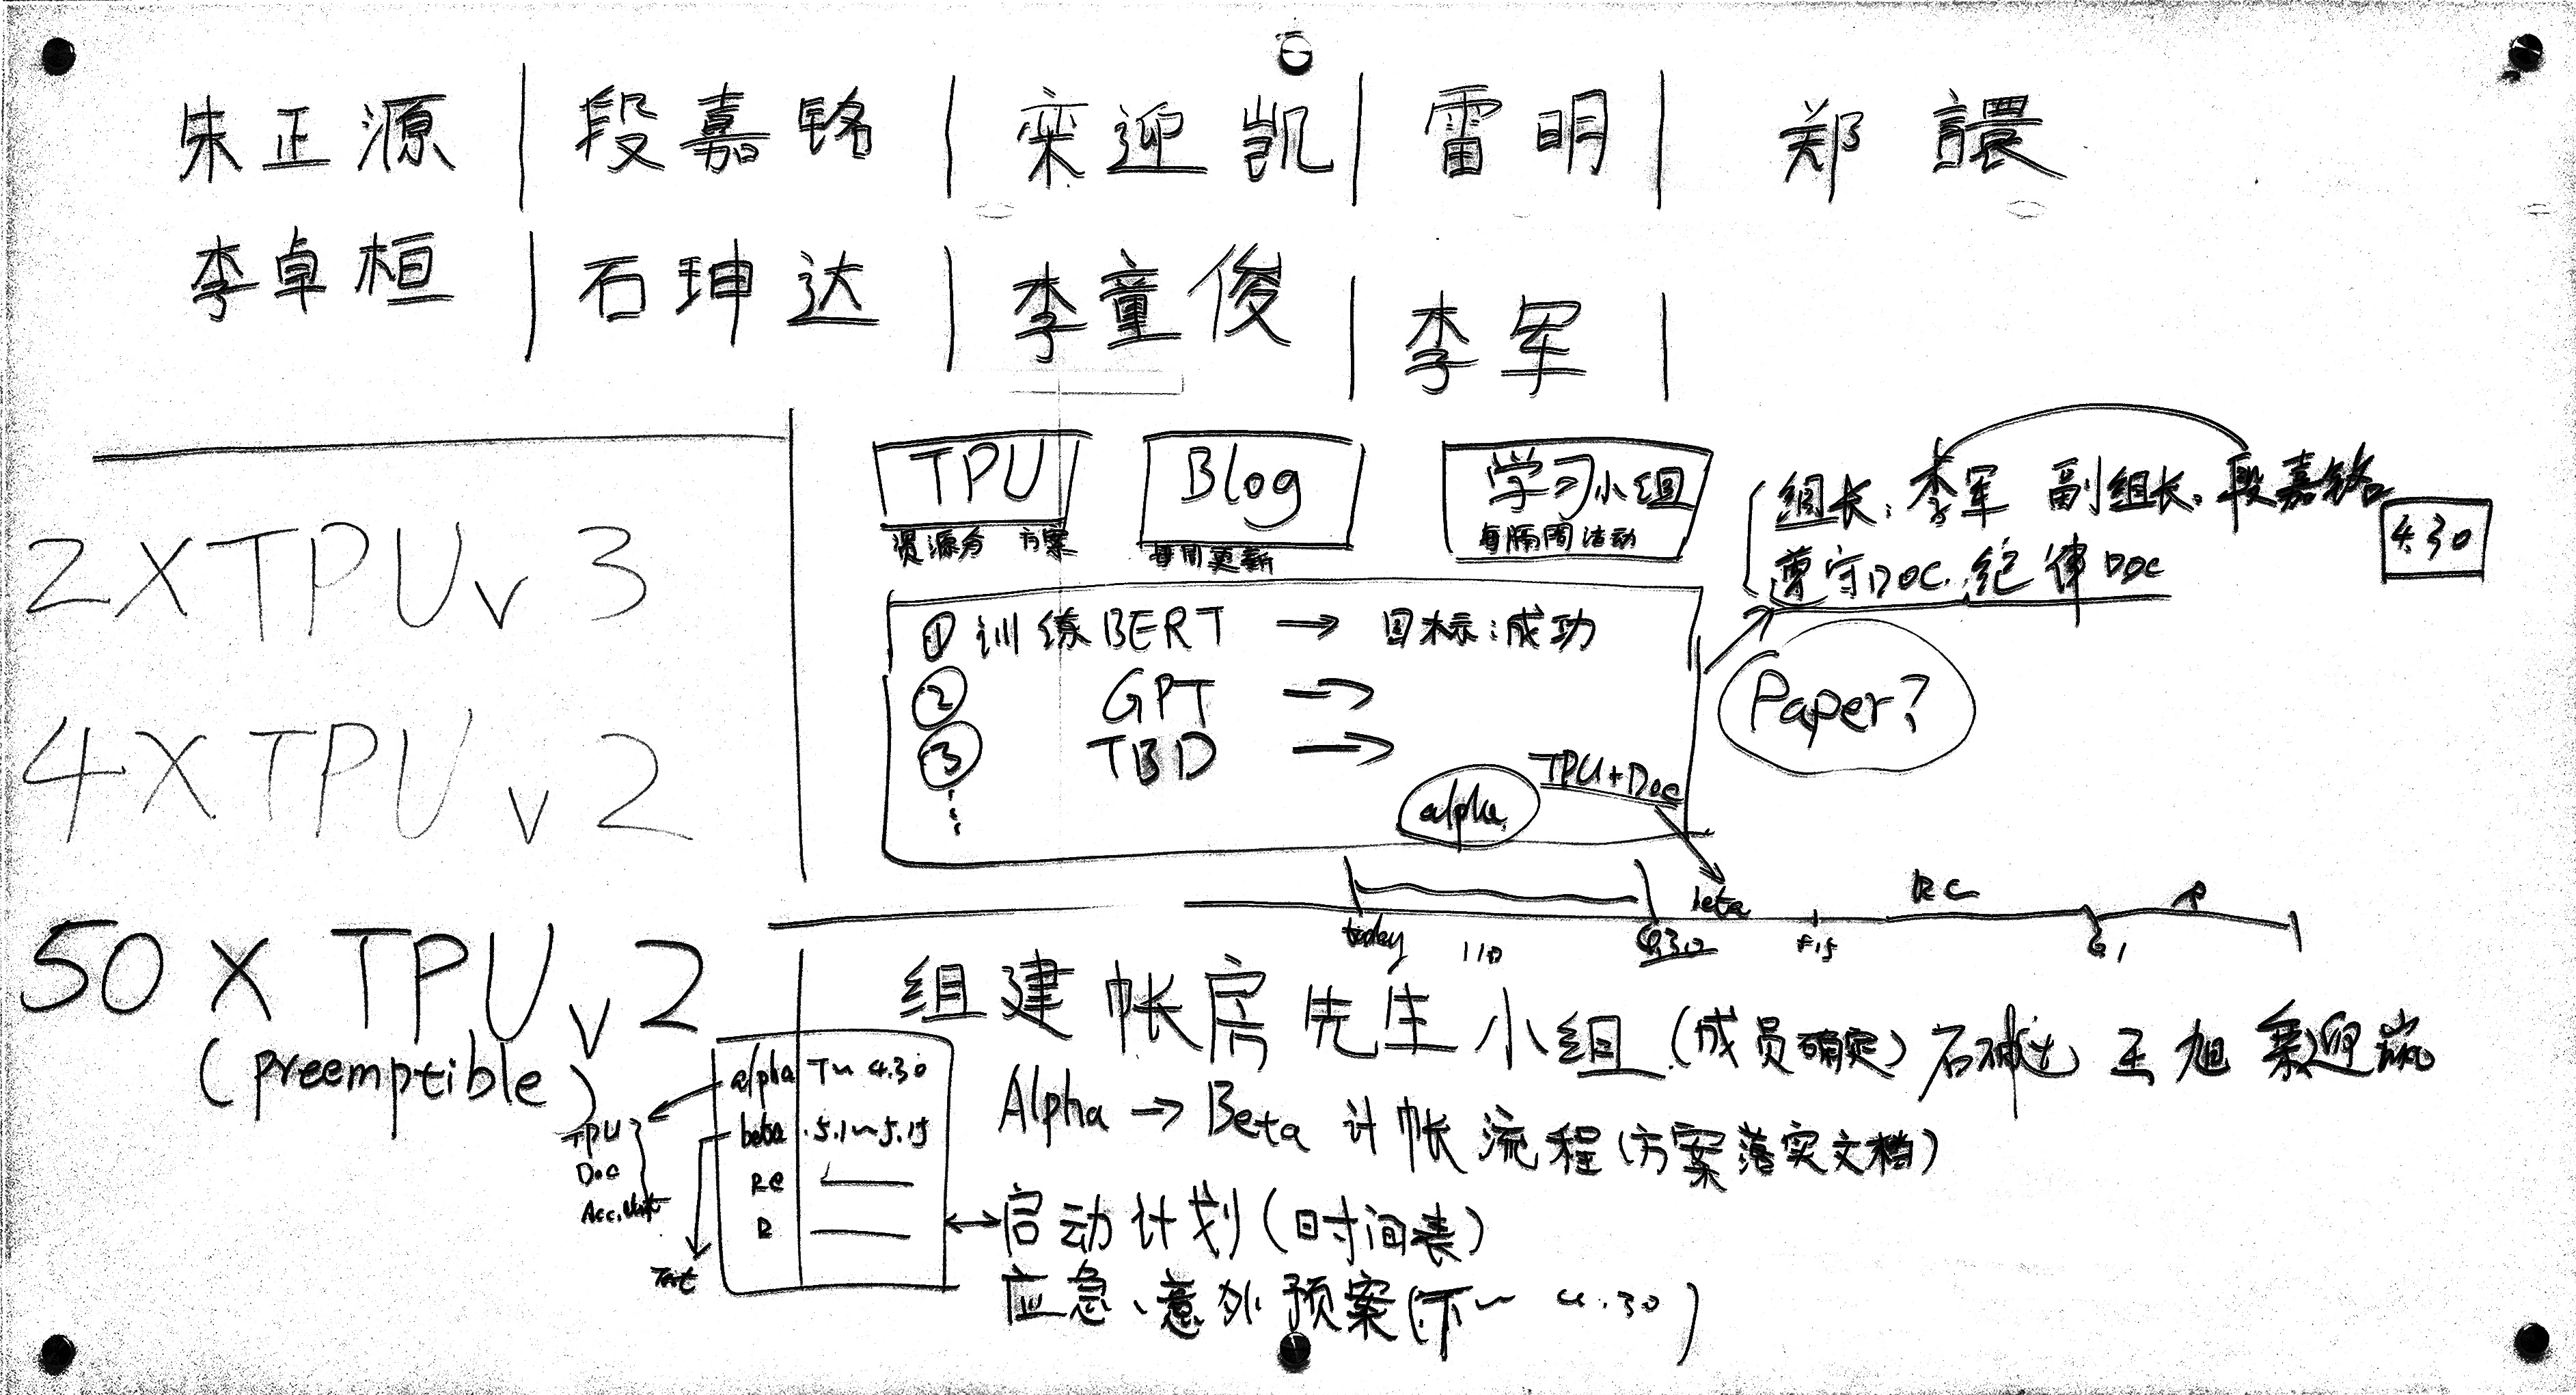 朱正源 | 段嘉铭 | 栾迎凯 | 雷明 | 郑譞
李卓桓 | 石珅达 | 李童俊 | 李军 |
2XTPUv3
4XTPUv2
50XTPUv2
(preemptible)
TPU
资源分 方案
Blog
每周更新
学习小组
每隔周活动
组长:李军 副组长:段嘉铭
遵守DOC.纪律DOC
4.30
① 训练BERT → 目标:成功
② GPT →
③ TBD →
Paper?
alpha
TPU+Doc
beta
RC
R
today
4.30
5.15
6.1
组建帐房先生小组(成员确定) 石珅达 王旭 栾迎凯
Alpha → Beta 计帐流程(方案落实文档)
启动计划(时间表)
应急、意外预案(下~ 4.30)
alpha T~4.30
beta 5.1~5.15
RC
R
TPU
Doc
Test